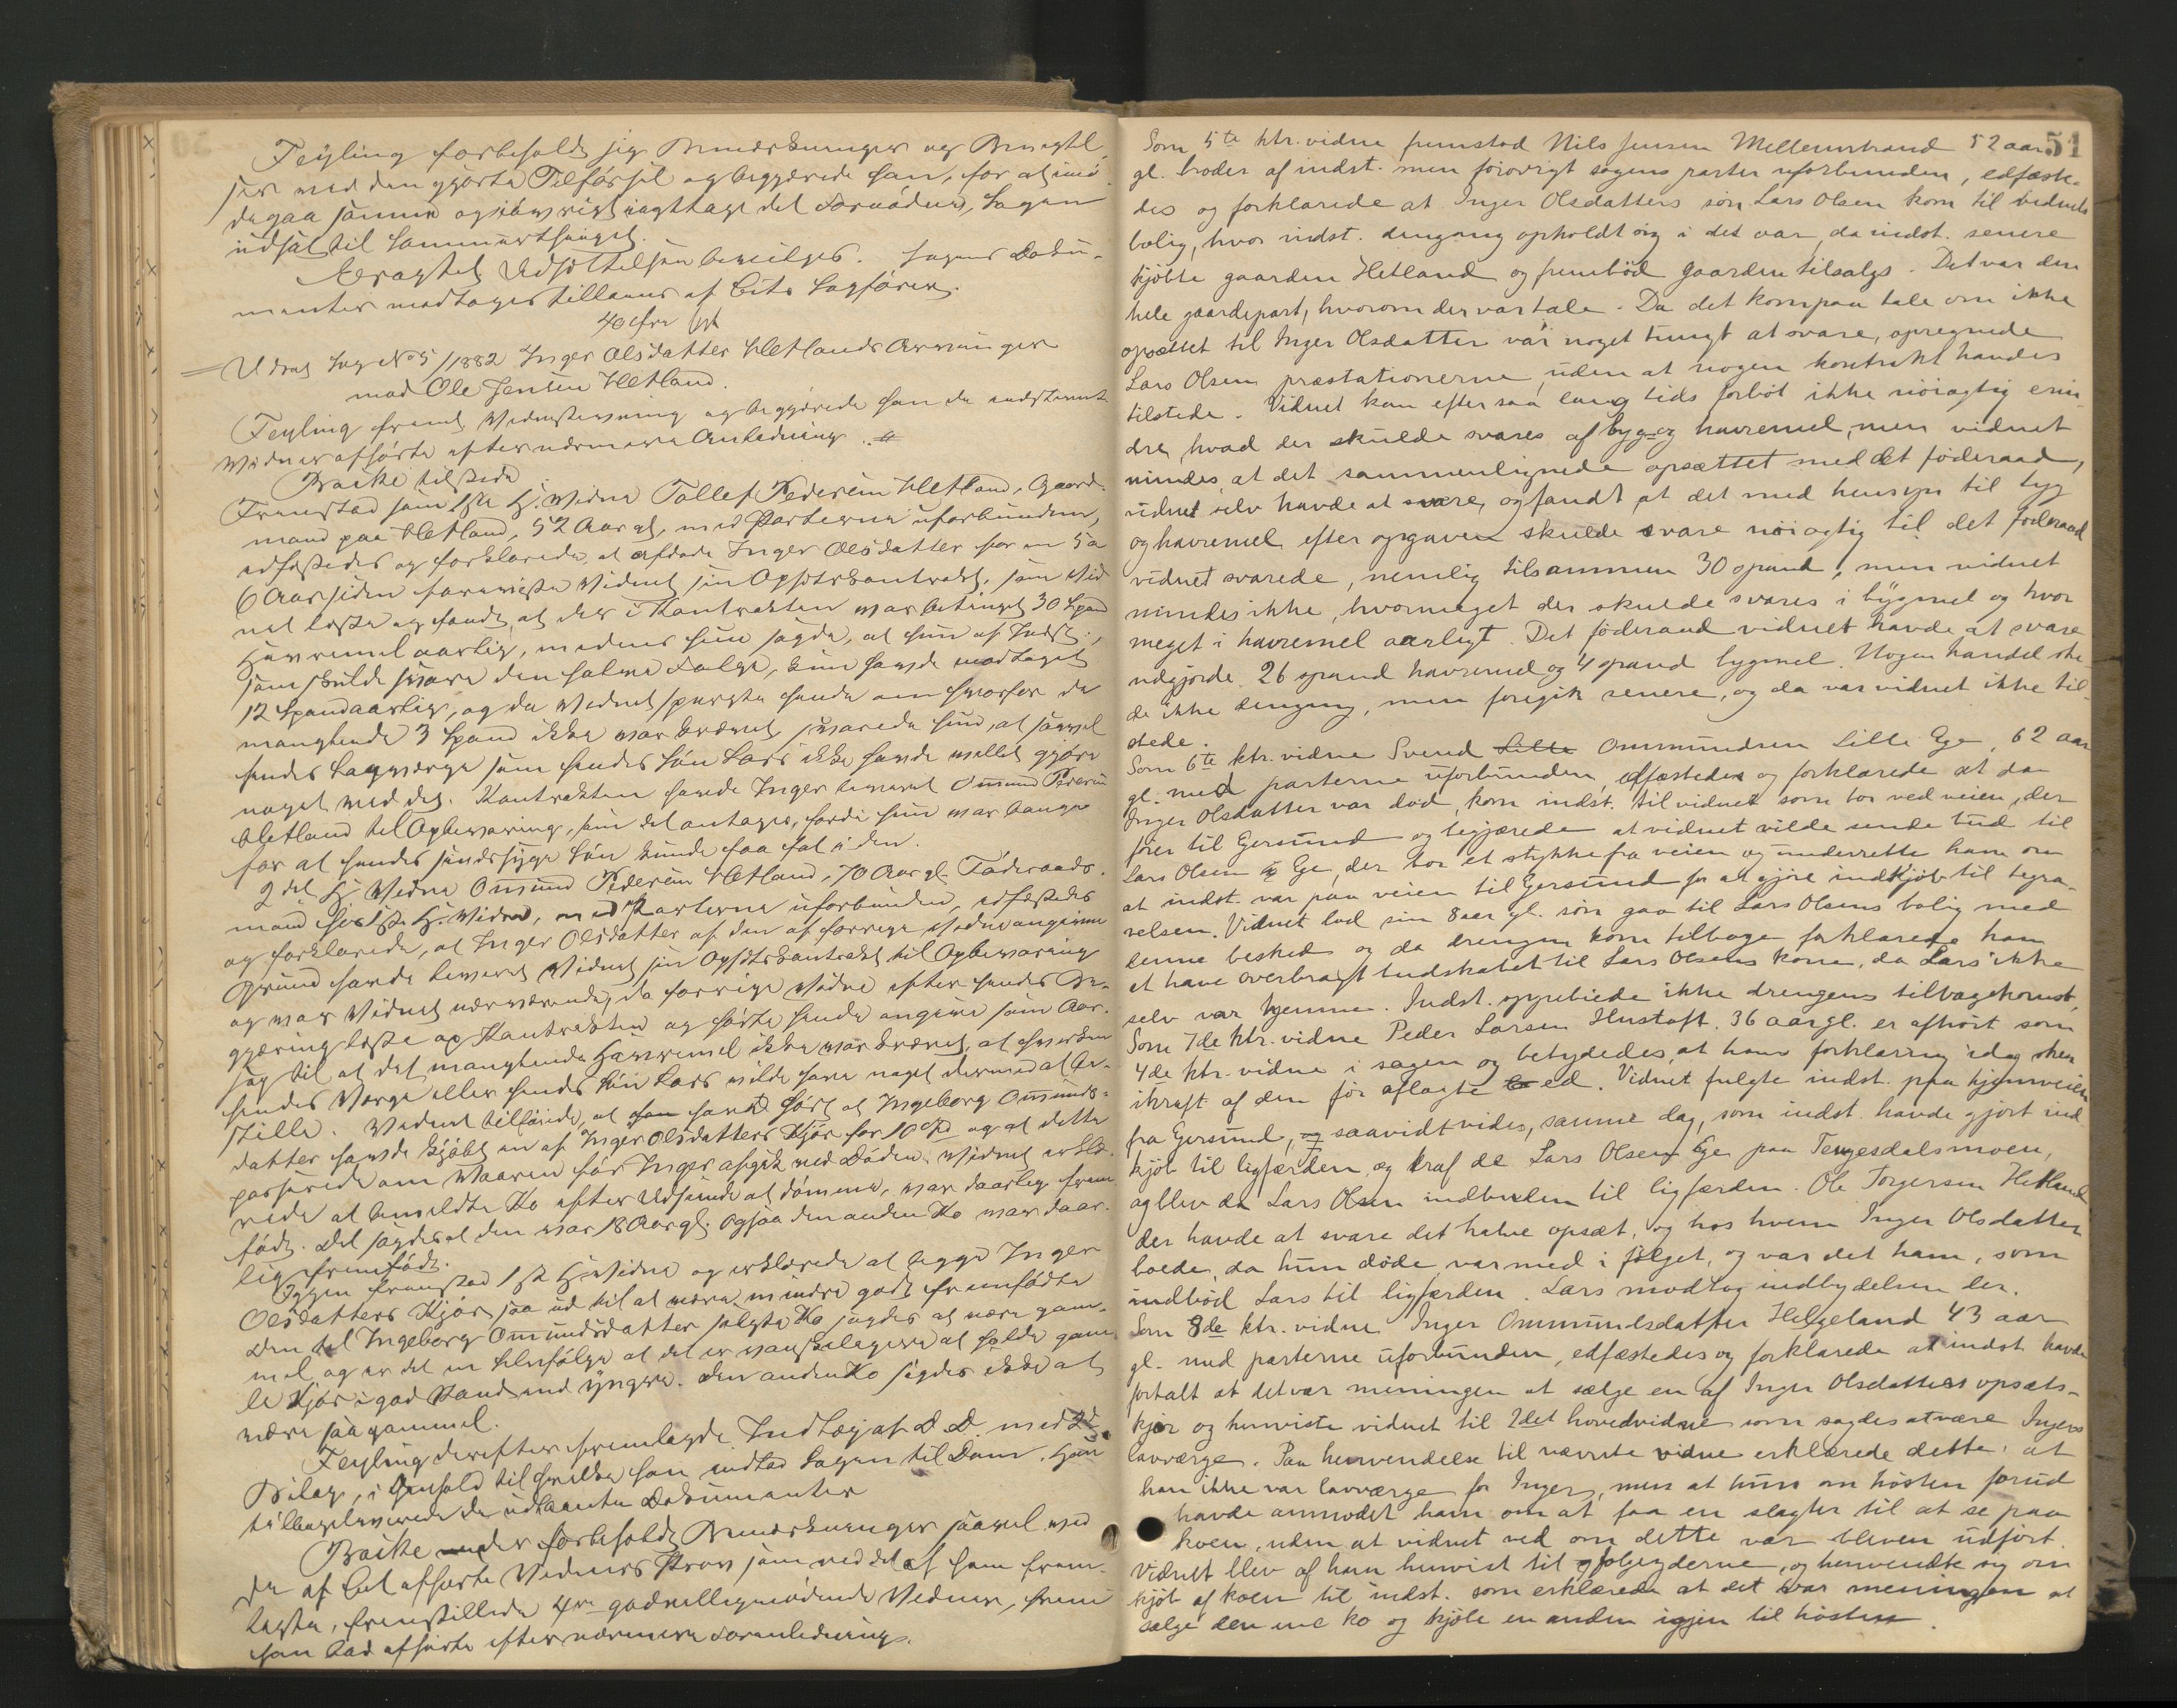 Feyling forbeholdt sig Bemærkninger og Benægtel-
ser ved den gjorte Tilførsel og begjærede han, for at imø-
degaa samme og iøvrigt iagttage det Fornødne, Sagen
udsat til Sommerthinget.
Eragtet Udsættelsen bevilges. Sagens Doku-
menter modtages tillaans af Cits Sagfører.
Udsat Sag No 5/1882 Inger Olsdatter Hetlands Arvinger
mod Ole Jensen Hetland.
Feyling freml. Vidnestevning og begjærede han de indstevnte
Vidner afhørte efter nærmere Anledning.
Backe tilstede
Fremstod som 1ste H. Vidne Tollef Pedersen Hetland, Gaard-
mand paa Hetland, 52 Aar gl, med Parterne uforbunden,
edfæstedes og forklarede, at afdøde Inger Olsdatter for en 5 a
6 Aar siden foreviste Vidnet sin Opsætskontrakt, som Vid-
net læste og fandt, at der i Kontrakten var betinget 30 Spand
Havremel aarlig, medens hun sagde, at hun af Indst.,
som skulde svare den halve Folge, kun havde modtaget
12 Spand aarlig, og da Vidnet spurgte hende om hvorfor de
manglende 3 Spand ikke var krævet, svarede hun, at saavel
hendes Lagværge som hendes Søn Lars ikke havde villet gjøre
noget ved det. Kontrakten havde Inger leveret Omund Pedersen
Hetland til Opbevaring, som det antages, fordi hun var bange
for at hendes sindssyge Søn kunde faa fat i den.
2det H. Vidne Omund Pedersen Hetland, 70 Aar gl. Føderaads-
mand hos 1ste H. Vidne, med Parterne uforbunden, edfæstedes
og forklarede, at Inger Olsdatter af den af forrige Vidne angivne
Grund havde leveret Vidnet sin Opsætskontrakt til Opbevaring
og var Vidnet nærværende, da forrige Vidne efter hendes Be-
gjæring læste op Kontrakten og hørte hende angive som Aar-
sag til at det manglende Havremel ikke var krævet, at hverken
hendes Værge eller hendes Søn Lars vilde have noget dermed at be-
stille. Vidnet tilføiede, at han havde hørt at Ingeborg Omunds-
datter havde kjøbt en af Inger Olsdatters Kjør for 10 og at dette
passerede om Vaaren før Inger afgik ved Døden. Vidnet erklæ-
rede at bemeldte Ko efter Udseende at dømme, var daarlig frem-
født. Det sagdes at den var 18 Aar gl. Ogsaa den anden Ko var daar-
lig fremfødt.
Igjen fremstod 1ste H. Vidne og erklærede at begge Inger
Olsdatters Kjør saa ud til at være mindre godt fremfødte
Den til Ingeborg Omundsdatter solgte Ko sagdes at være gam-
mel, og er det en Selvfølge at det er vanskeligere at holde gam-
le Kjør i god Stand end yngre. Den anden Ko sagdes ikke at
være saa gammel.
Feyling derefter fremlagde Indlæg af D. D. med
Bilag, i Henhold til hvilke han indlod Sagen til Dom. Han
tilbageleverede de udlaante Dokumenter
Backe forbeholdt Bemærkninger saavel ved
de af Cit. afhørte Vidners Prov som ved det af ham frem-
lagte, fremstillede 4re godvilligmødende Vidner, hvem
han bad afhørte efter nærmere Foranledning.
51
Som 5te ktr. vidne fremstod Nils Jensen Mellemstrand 52 aar
gl. broder af indst. men forøvrigt sagens parter uforbunden, edfæste-
des og forklarede at Inger Olsdatters søn Lars Olsen kom til vidnets
bolig, hvor indst. dengang opholdt sig i det aar, da indst. senere
kjøbte gaarden Hetland og frembød gaarden tilsalgs. Det var den
hele gaardepart, hvorom der var tale. Da det kom paa tale om ikke
opsættet til Inger Olsdatter var noget tungt at svare, opregnede
Lars Olsen præstationerne, uden at nogen kontrakt havdes
tilstede. Vidnet kan efter saa lang tids forløb ikke nøiagtig erin-
dre, hvad der skulde svares af byg- og havremel, men vidnet
mindes at det sammenlignede opsættet med det føderaad,
vidnet selv havde at svare, og fandt at det med hensyn til byg
og havremel efter opgaven skulde svare nøiagtig til det føderaad
vidnet svarede, nemlig tilsammen 30 spand, men vidnet
mindes ikke, hvormeget der skulde svares i bygmel og hvor
meget i havremel aarligt. Det føderaad vidnet havde at svare
udgjorde 26 spand havremel og 4 spand bygmel. Nogen handel ske-
de ikke dengang, men foregik senere, og da var vidnet ikke til-
stede.
Som 6te ktr. vidne Svend Ommundsen Lille Ege, 62 aar
gl. med parterne uforbunden, edfæstedes og forklarede at da
Inger Olsdatter var død, kom indst. til vidnet som bor ved veien, der
fører til Egersund og begjærede at vidnet vilde sende bud til
Lars Olsen Ege, der bor et stykke fra veien og underrette ham om
at indst. var paa veien til Egersund for at gjøre indkjøb til begra-
velsen. Vidnet lod sin 8 aar gl. søn gaa til Lars Olsens bolig med
denne besked og da drengen kom tilbage forklarede han
at have overbragt budskabet til Lars Olsens kone, da Lars ikke
selv var hjemme. Indst. oppebiede ikke drengens tilbagekomst.
Som 7de ktr. vidne Peder Larsen Hustoft, 36 aar gl. er afhørt som
4de ktr. vidne i sagen og betydedes, at hans forklaring idag sker
ikraft af den før aflagte ed. Vidnet fulgte indst. paa hjemveien
fra Egersund, saavidt vides, samme dag, som indst. havde gjort ind
kjøb til ligfærden, og traf de Lars Olsen Ege paa Tengesdalsmoen,
og blev da Lars Olsen indbuden til ligfærden. Ole Torgersen Hetland
der havde at svare det halve opsæt, og hos hvem Inger Olsdatter
boede, da hun døde var med i følget, og var det ham, som
indbød Lars til ligfærden. Lars modtog indbydelsen der.
Som 8de ktr. vidne Inger Ommundsdatter Helgeland 43 aar
gl. med parterne uforbunden, edfæstedes og forklarede at indst. havde
fortalt at det var meningen at sælge en af Inger Olsdatters opsæts-
kjør og henviste vidnet til 2det hovedvidne som sagdes at være Ingers
lavværge. Paa henvendelse til nævnte vidne erklærede dette, at
han ikke var lavværge for Inger, men at hun om høsten forud
havde anmodet ham om at faa en slagter til at se paa
koen, uden at vidnet ved om dette var bleven udført.
Vidnet blev af ham henvist til følgyderne, og henvendte sig om
kjøb af koen til indst. som erklærede at det var meningen at
sælge den ene ko og kjøbe en anden igjen til høsten.